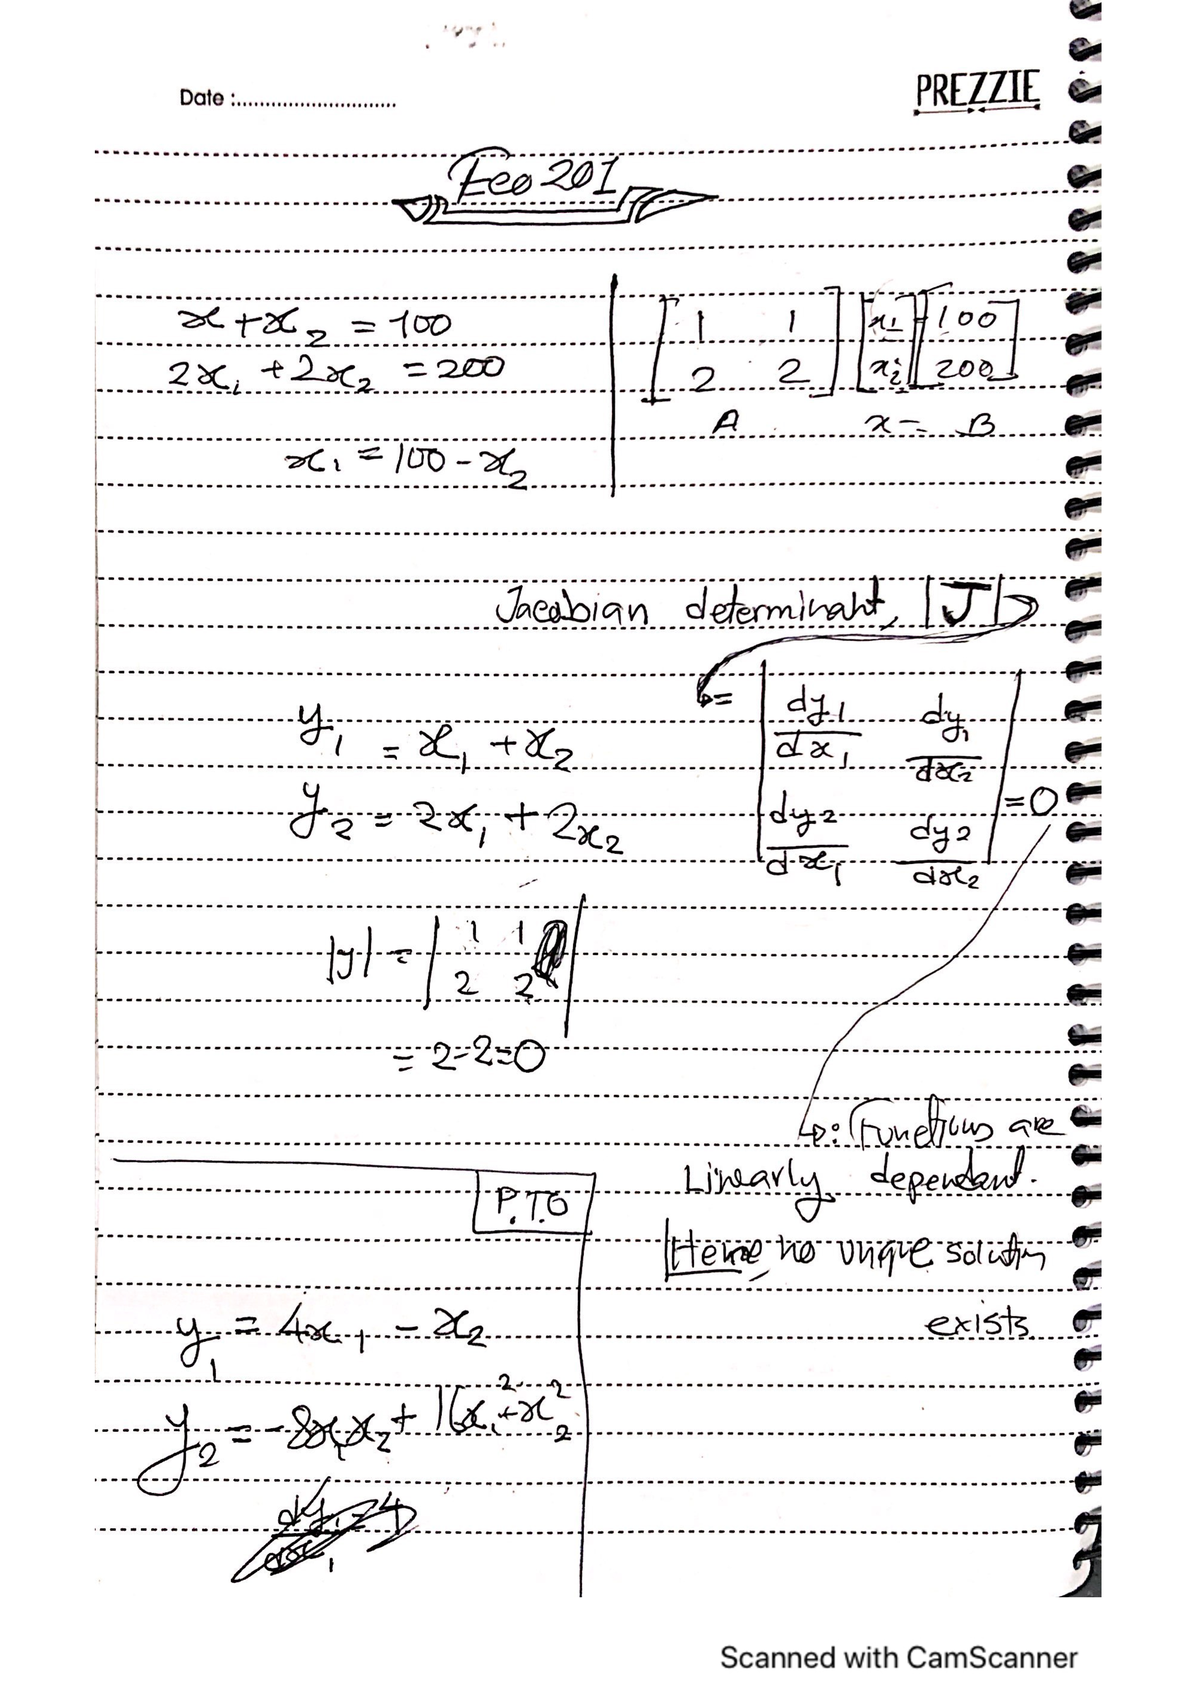 Date :..............................
PREZZIE
Eco 201
x + x₂ = 100
2x₁ + 2x₂ = 200
x₁ = 100 - x₂
[1 1] [x₁] = [100]
[2 2] [x₂] [200]
A x = B
Jacobian determinant, |J|
y₁ = x₁ + x₂
y₂ = 2x₁ + 2x₂
= | dy₁/dx₁ dy₁/dx₂ |
| dy₂/dx₁ dy₂/dx₂ | = 0
|y| = | 1 1 |
| 2 2 |
= 2-2=0
∴ Functions are
Linearly dependent.
Hence, no unique solution
exists.
P.T.O
y₁ = 4x₁ - x₂
y₂ = -8x₁x₂ + 16x₁² + x₂²
dy₁/dx₁ = 4
Scanned with CamScanner